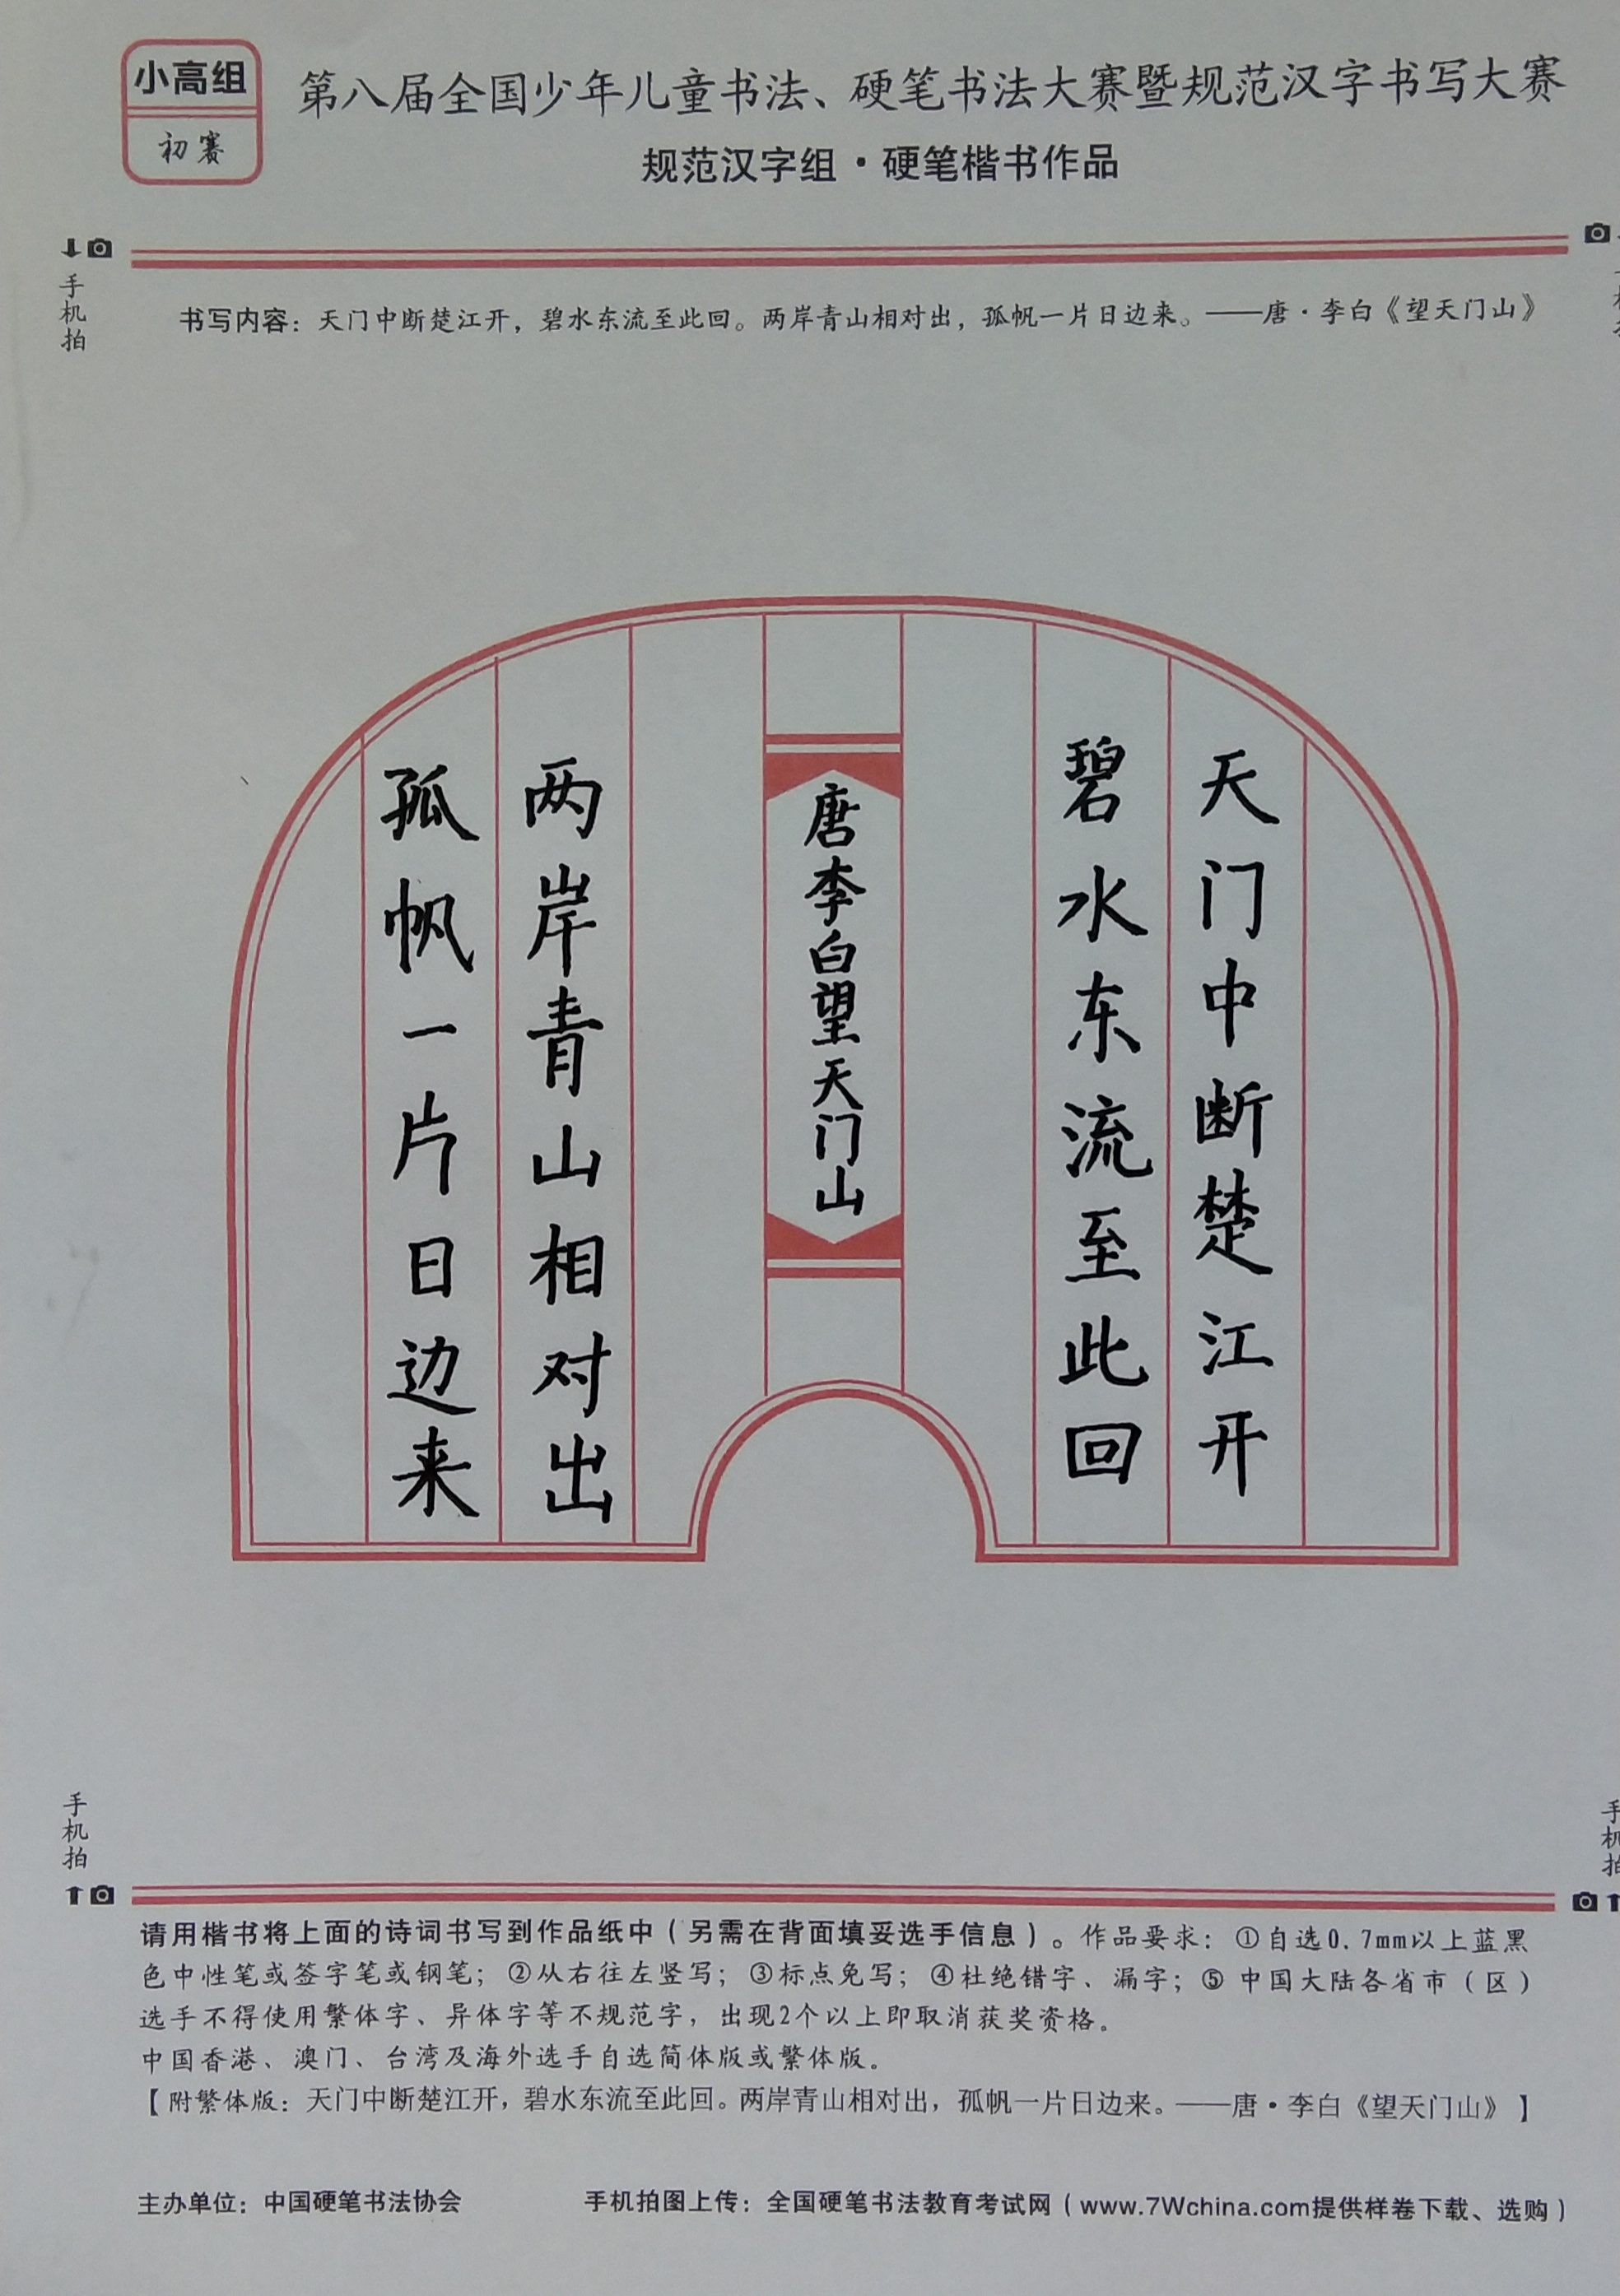 小高组
初赛
第八届全国少年儿童书法、硬笔书法大赛暨规范汉字书写大赛
规范汉字组·硬笔楷书作品
手机拍
书写内容：天门中断楚江开，碧水东流至此回。两岸青山相对出，孤帆一片日边来。——唐·李白《望天门山》
天门中断楚江开
碧水东流至此回
唐李白望天门山
两岸青山相对出
孤帆一片日边来
手机拍
手机拍
请用楷书将上面的诗词书写到作品纸中（另需在背面填妥选手信息）。作品要求：①自选0.7mm以上蓝黑
色中性笔或签字笔或钢笔；②从右往左竖写；③标点免写；④杜绝错字、漏字；⑤中国大陆各省市（区）
选手不得使用繁体字、异体字等不规范字，出现2个以上即取消获奖资格。
中国香港、澳门、台湾及海外选手自选简体版或繁体版。
【附繁体版：天门中断楚江开，碧水东流至此回。两岸青山相对出，孤帆一片日边来。——唐·李白《望天门山》】
主办单位：中国硬笔书法协会
手机拍图上传：全国硬笔书法教育考试网（www.7Wchina.com提供样卷下载、选购）